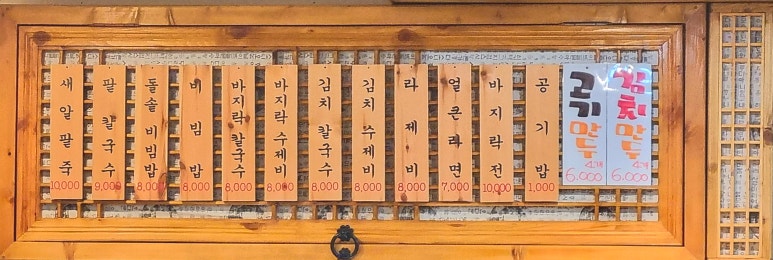 새알팥죽 10,000
팥칼국수 9,000
돌솥비빔밥 8,000
비빔밥 8,000
바지락칼국수 8,000
바지락수제비 8,000
김치칼국수 8,000
김치수제비 8,000
라제비 8,000
얼큰라면 7,000
바지락전 10,000
공기밥 1,000
고기만두 4개 6.000
김치만두 4개 6.000